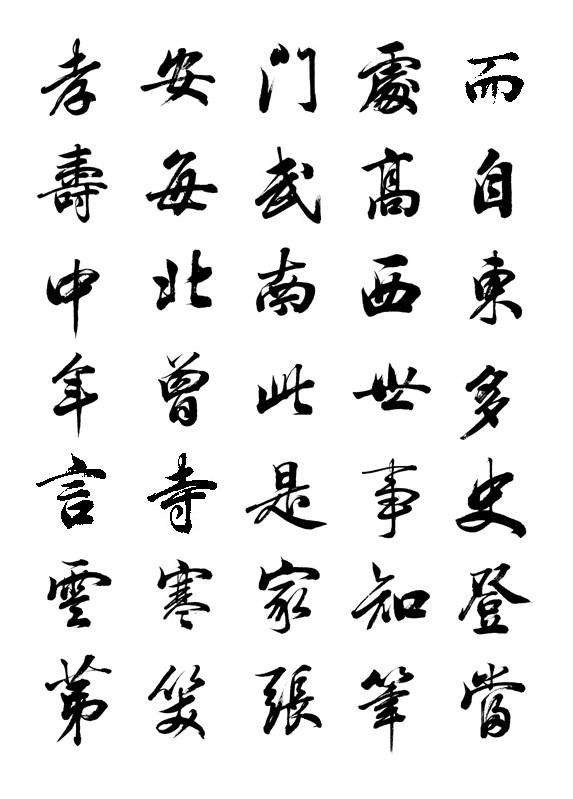 而自東多史登當
處高西世事知筆
門武南此是家張
安每北曾寺寒笑
孝壽中年言雲第